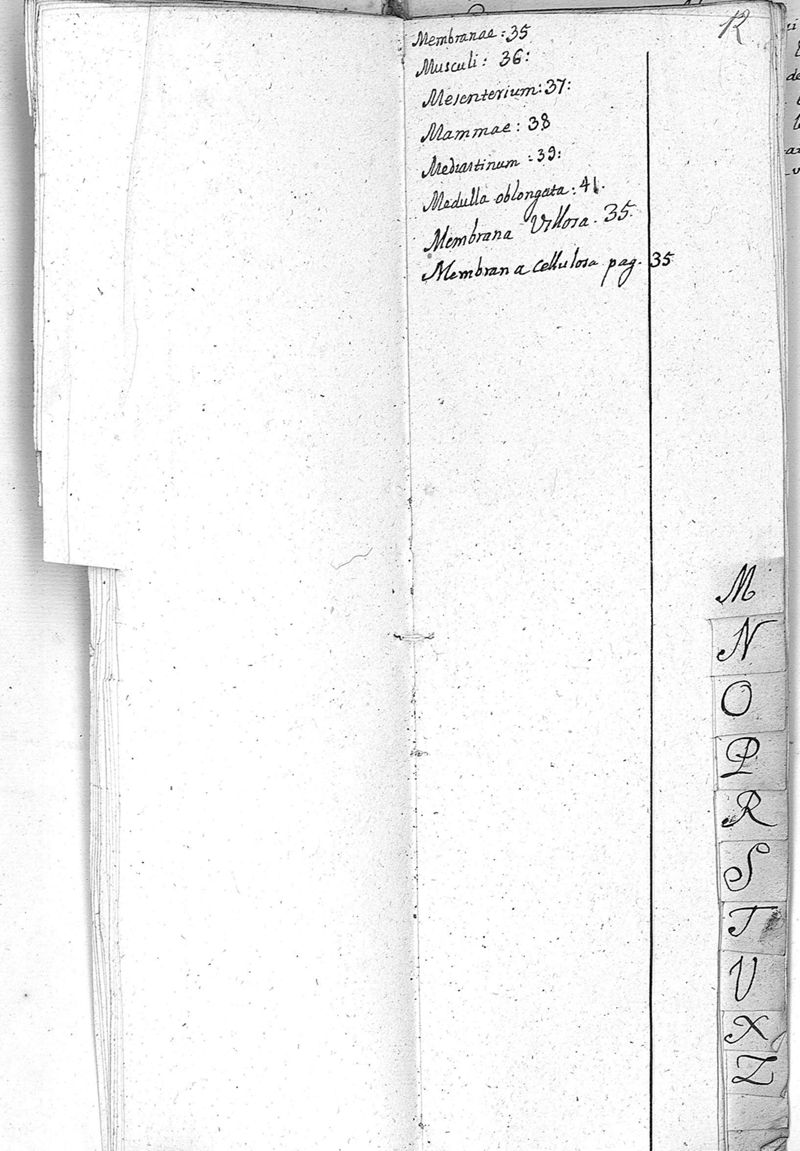 12
Membranae: 35
Musculi: 36:
Mesenterium: 37:
Mammae: 38
Mediastinum: 39:
Medulla oblongata: 41.
Membrana Villosa. 35.
Membrana cellulosa pag. 35
M
N
O
P
R
S
T
V
X
Z